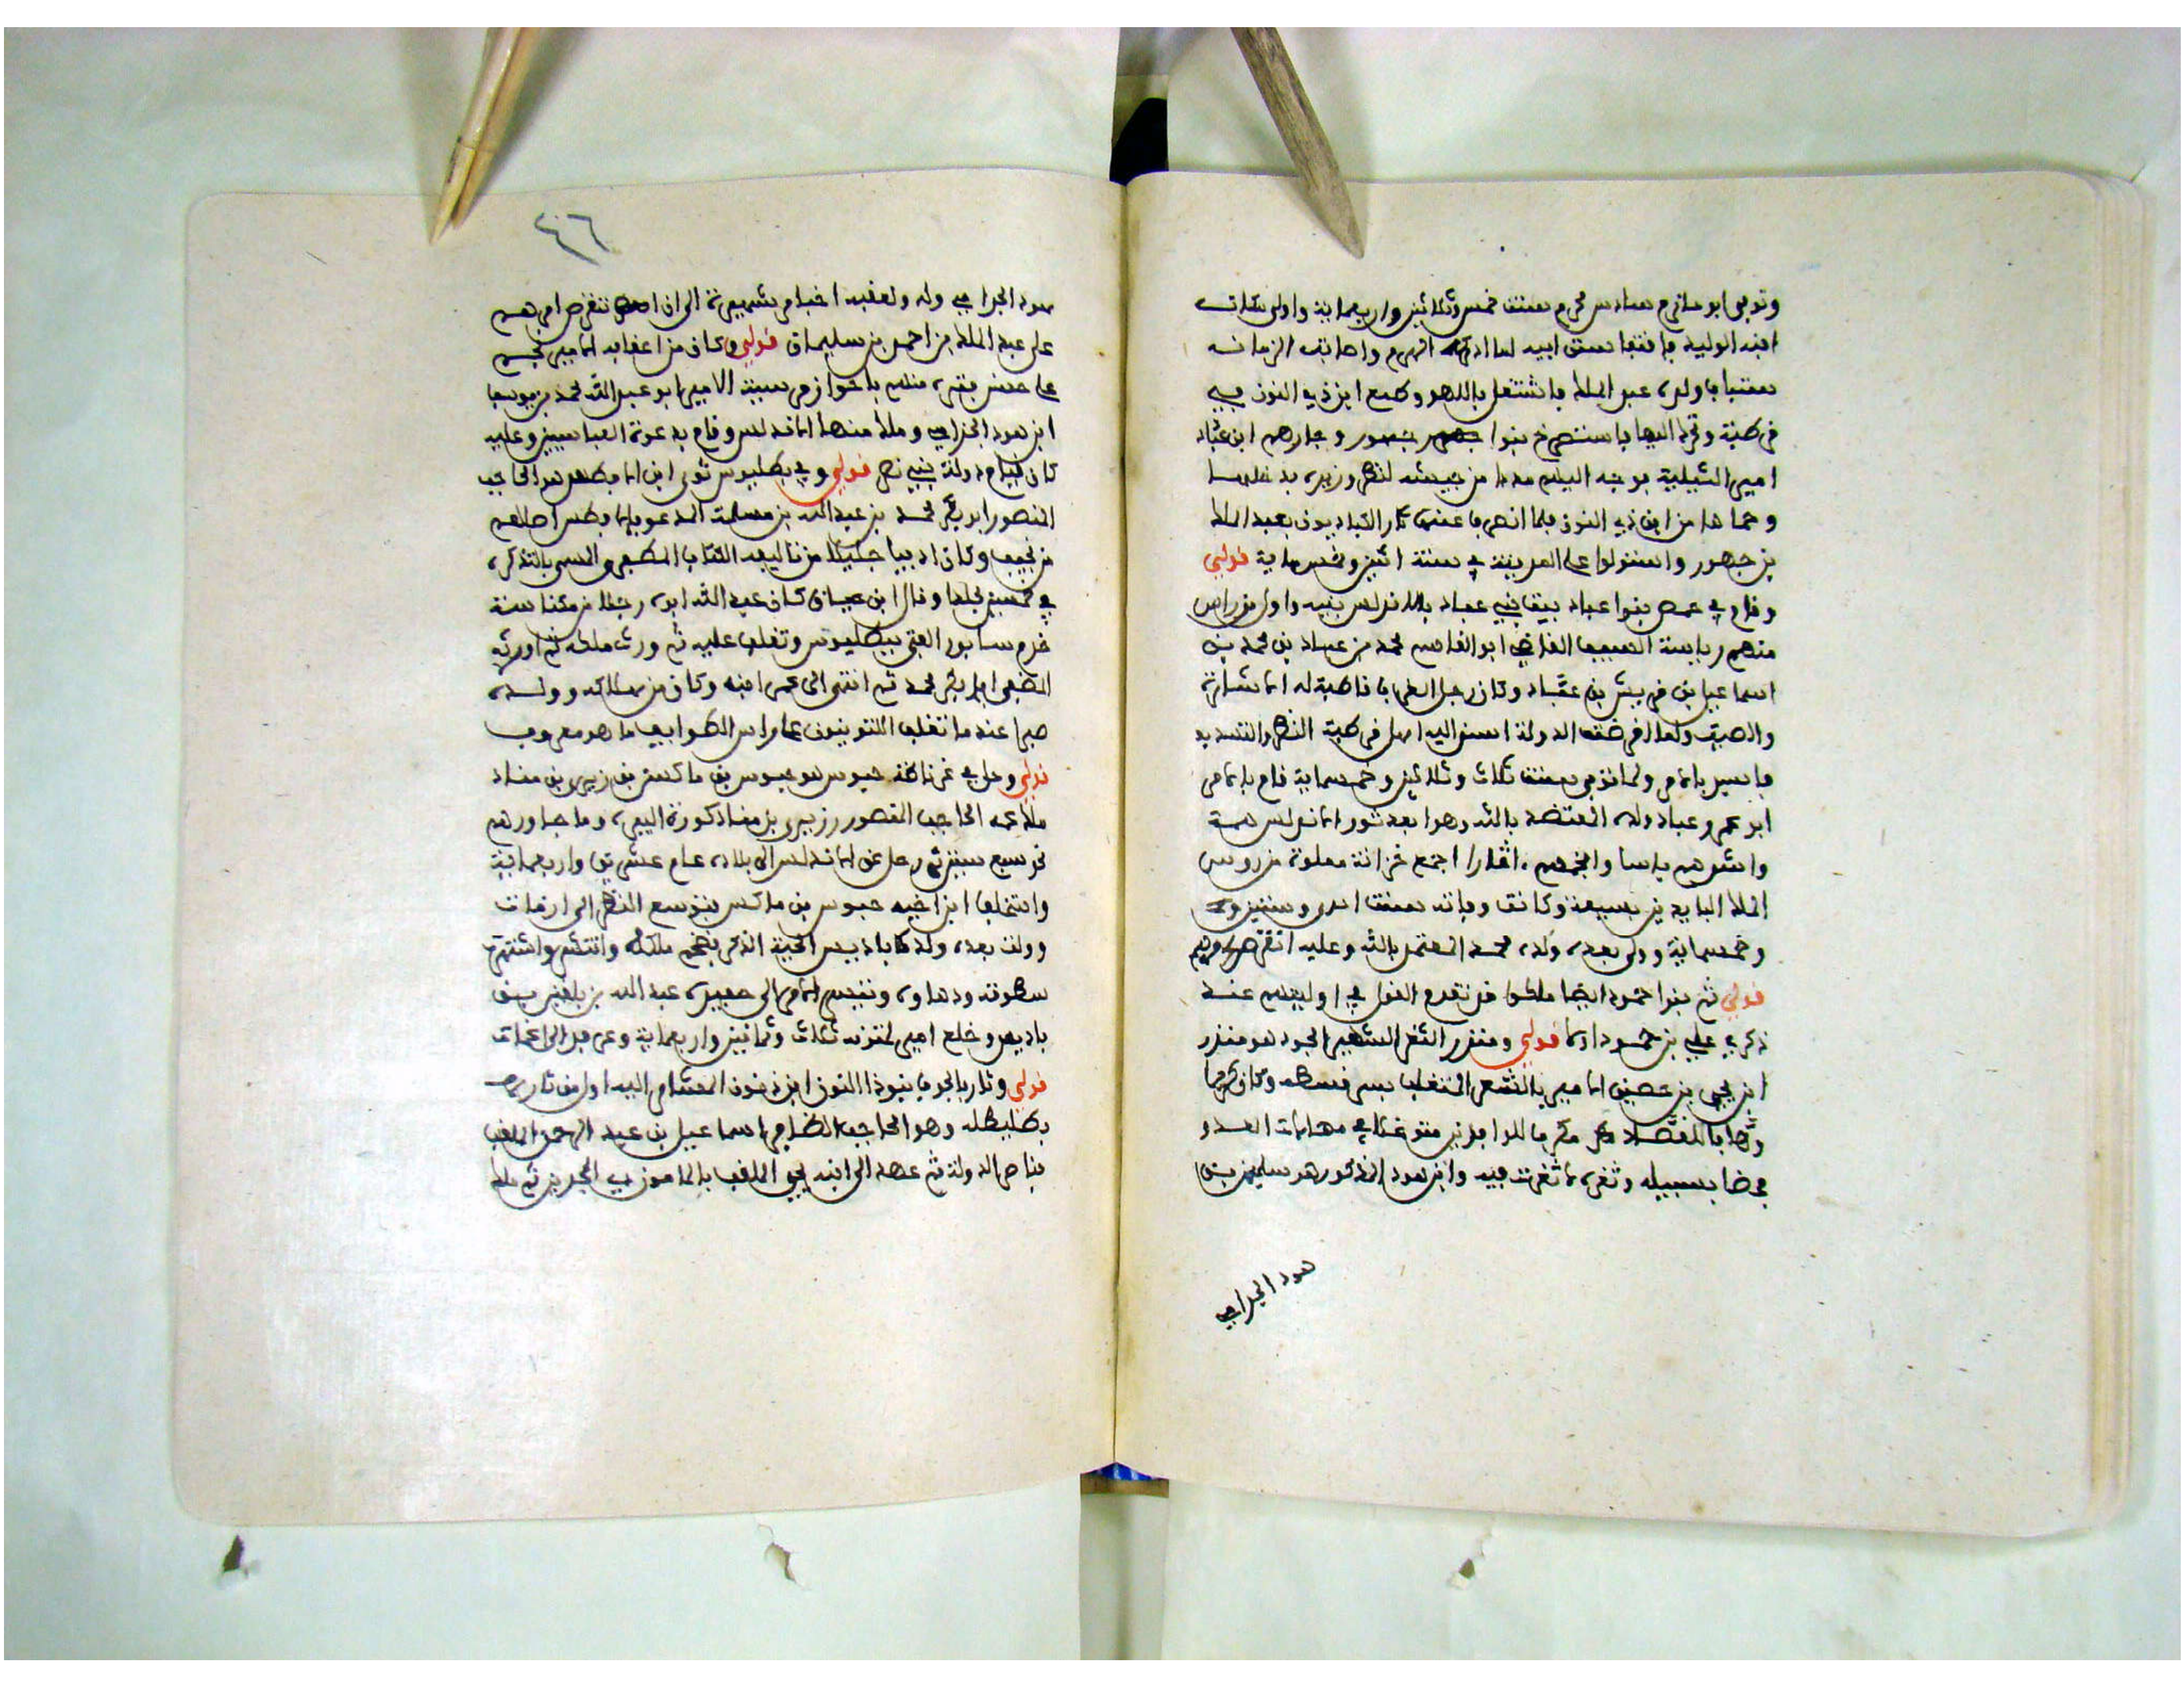 وتوفي ابو سادس محرم سنة خمس وثلاثين واربعماية واولى
ابنه الوليد فاقتفا سنن ابيه لما ادركه الهرم واصابته الزمانه
عبد الملك فاشتغل باللهو وطمع ابن ذي النون في
قرطبة وتحرك اليها فاستنصرخ بنوا جهور وجارهم ابن عباد
امير اشبيلية فوجه اليهم مددا من جيشه لنظر وزيره
وحماها من ابن ذي النون فلما انصرفا العباديون بعبد الملك
بن جهور واستولوا على المدينة في سنة اثنين وخمس ماية قولي
وقام في حمص بنوا عباد بيتا بني عباد بالاندلس بنيه واول من راس
منهم رياسة القاضي ابو القاسم محمد بن عباد بن محمد بن
اسماعيل بن قريش بن عباد وكان رجل الغرب قاطبة له الاشارة
والصيت ولما انقرضت الدولة اسند اليه اهل قرطبة النظر والتسديد
بالامر ولما توفي سنة ثلاث وثلاثين وخمسماية قام بالامر
ابو عمرو عباد ولده المعتضد بالله وهو ابعد ثوار الاندلس همة
واشدهم باسا وانجدهم اثارا اجتمع خزانة مملوة من روس
الملك البايدين بسيفه وكانت وفاته سنة احدى وستين
وخمسماية وولى بعده ولده محمد المعتمد بالله وعليه انقرض امرهم
قولي ثم بنوا حمود ايضا ملكوا قد تقدم القول في اوليتهم عند
ذكري علي بن حمود اولا قولي ومنذر الثغر الشهير الجود هو منذر
ابن يحيى بن حصين الامير بالثغر المتغلب بسرقسطه وكان كريما
وهابا للقصاد مكرما للوافدين متوغلا في مهامات العدو
في سبيله وثغره ما ثغرت فيه وابن هود المذكور هو سليمن بن
هود الجذامي
٤٦
هود الجذامي وله ولعقبه اخبار شهيرة الى ان انقرض امرهم
على عبد الملك بن احمد بن سليمان قولي وكان من اعقابه الامير
على حين فترة منهم باحواز مرسية الامير ابو عبد الله محمد بن يوسف
ابن هود الجذامي وملك منها الاندلس وقام بدعوة العباسيين وعليه
كان قيام دولة بني نصر قولي وفي بطليوس ثوى ابن الافطس هو الحاجب
المنصور ابو بكر محمد بن عبد الله بن مسلمة المدعو بالافطس اصلهم
من تجيب وكان اديبا جليلا من تاليفه الكتاب المظفري المسمى بالتذكرة
في خمسين مجلدا وقال ابن حيان كان عبد الله ابوه رجلا من مكناسة
خدم سابور الفتى ببطليوس وتغلب عليه ثم ورث ملكه ثم اورثه
المظفر ابا بكر محمد ثم انتهى الى عمر ابنه وكان من هلاكه وولده
صبرا عند ما تغلب اللمتونيون على راس الطوايف ما هو معروف
قولي وحل في غرناطة حبوس هو حبوس بن ماكسن بن زيري بن مناد
ملك عمه الحاجب المنصور زيري بن مناد كورة البيرة وما جاورهم
نحو سبع سنين ثم رحل عن الاندلس الى بلاده عام عشرين واربعماية
واستخلف ابن اخيه حبوس بن ماكسن فتوسع النظر الى ان مات
وولت بعده ولده باديس الذكر فضخم ملكه وانتشر واشتهرت
سطوته ودهاوه الامر الى حفيده عبد الله بن بلقين بن
باديس وخلع امير لمتونه ثلاث وثمانين واربعماية وغرب الى اغمات
قولي وثار بالجوف بنو ذا النون ابن ذنون المشار اليه اول من ثار
بطليطله وهو الحاجب الظافر اسماعيل بن عبد الرحمن الملقب
بناصر الدولة ثم عهد الى ابنه يحيى الملقب بالمامون ثم ملك